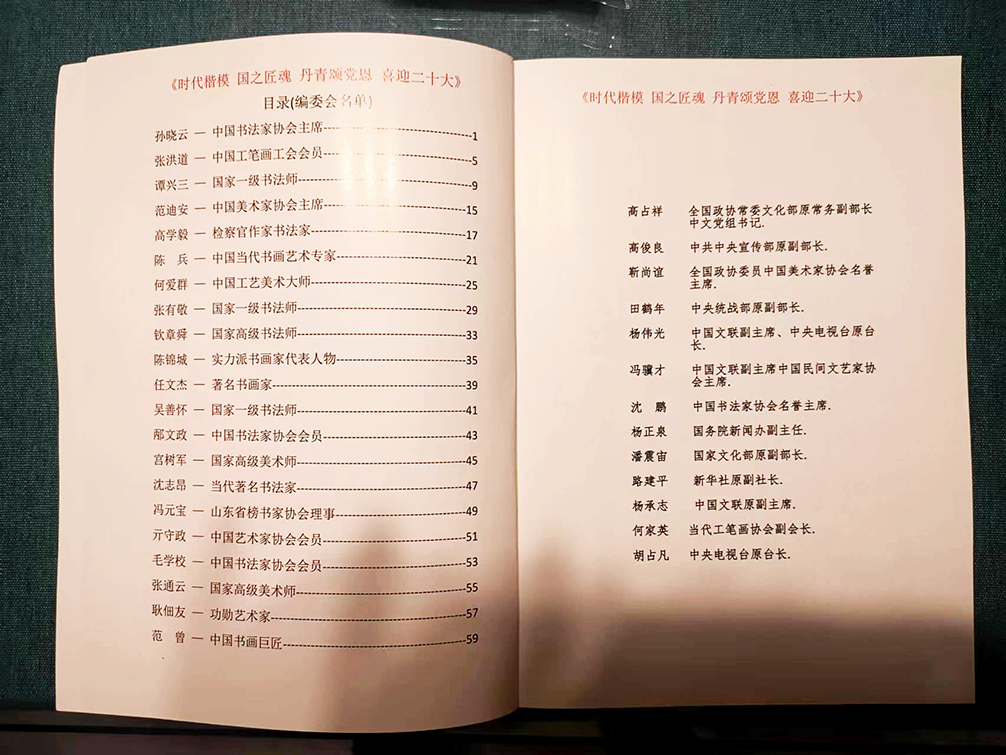 《时代楷模 国之匠魂 丹青颂党恩 喜迎二十大》
目录(编委会名单)
孙晓云 — 中国书法家协会主席--------------------1
张洪道 — 中国工笔画工会会员--------------------5
谭兴三 — 国家一级书法师--------------------9
范迪安 — 中国美术家协会主席--------------------15
高学毅 — 检察官作家书法家--------------------17
陈 兵 — 中国当代书画艺术专家--------------------21
何爱群 — 中国工艺美术大师--------------------25
张有敬 — 国家一级书法师--------------------29
钦章舜 — 国家高级书法师--------------------33
陈锦城 — 实力派书画家代表人物--------------------35
任文杰 — 著名书画家--------------------39
吴善怀 — 国家一级书法师--------------------41
鄢文政 — 中国书法家协会会员--------------------43
宫树军 — 国家高级美术师--------------------45
沈志昂 — 当代著名书法家--------------------47
冯元宝 — 山东省榜书家协会理事--------------------49
亓守政 — 中国艺术家协会会员--------------------51
毛学校 — 中国书法家协会会员--------------------53
张通云 — 国家高级美术师--------------------55
耿佃友 — 功勋艺术家--------------------57
范 曾 — 中国书画巨匠--------------------59
《时代楷模 国之匠魂 丹青颂党恩 喜迎二十大》
高占祥 全国政协常委文化部原常务副部长
中文党组书记.
高俊良 中共中央宣传部原副部长.
靳尚谊 全国政协委员中国美术家协会名誉
主席.
田鹤年 中央统战部原副部长.
杨伟光 中国文联副主席、中央电视台原台
长.
冯骥才 中国文联副主席中国民间文艺家协
会主席.
沈 鹏 中国书法家协会名誉主席.
杨正泉 国务院新闻办副主任.
潘震宙 国家文化部原副部长.
路建平 新华社原副社长.
杨承志 中国文联原副主席.
何家英 当代工笔画协会副会长.
胡占凡 中央电视台原台长.